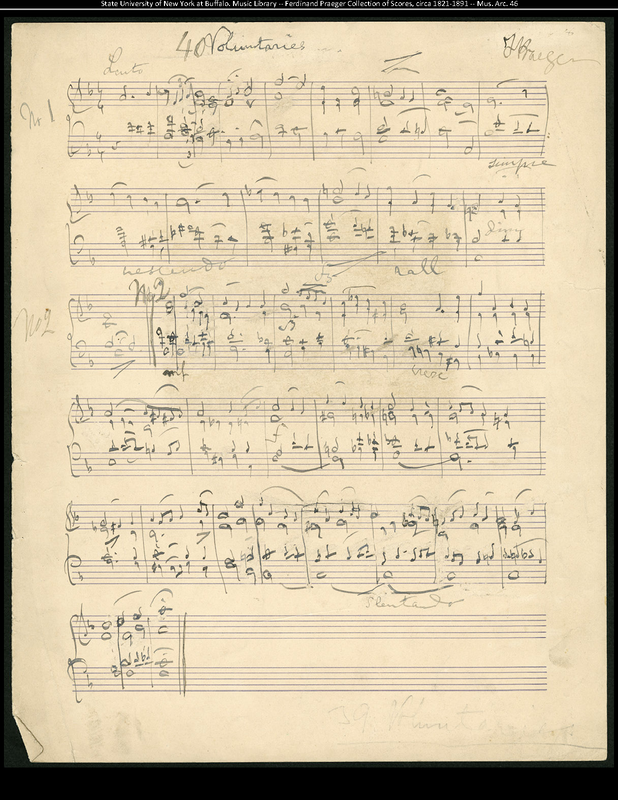 State University of New York at Buffalo. Music Library -- Ferdinand Praeger Collection of Scores, circa 1821-1891 -- Mus. Arc. 46
40 Voluntaries
F Praeger
Lento
No 1
sempre
dim
rall
No 2
No 2
mf
cresc
slentando
39